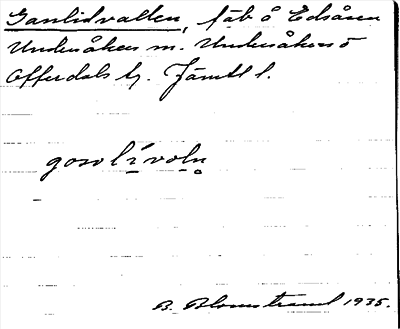 Ganlidvallen, fäb å Edsåsen
Undersåkers sn. Undersåkers o
Offerdals tg. Jämtl l.
B. Blomstrand 1935.